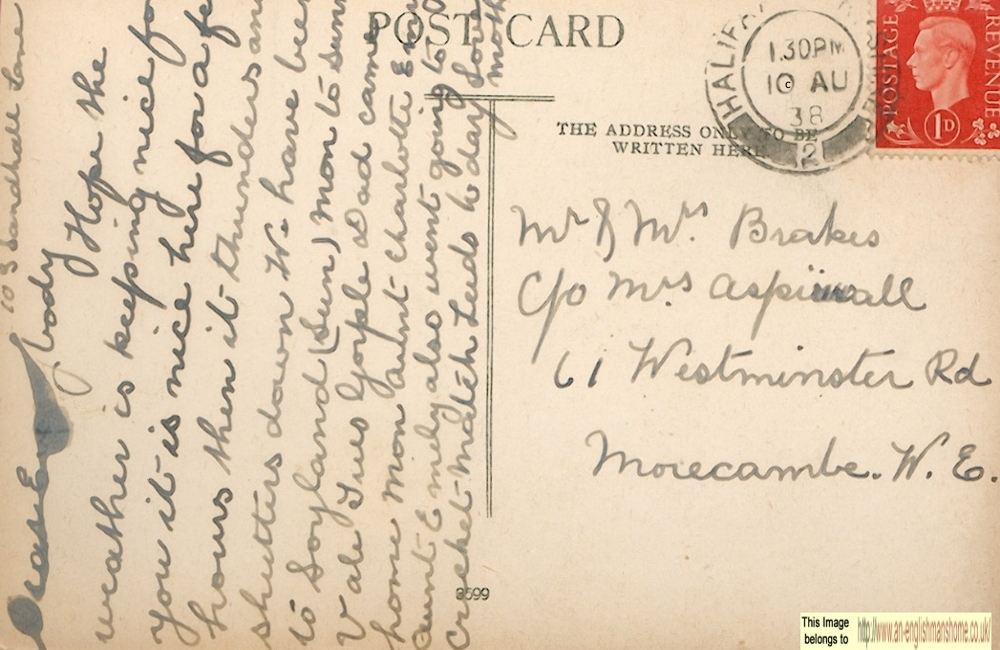 POST CARD
THE ADDRESS ONLY TO BE
WRITTEN HERE
HALIF
1.30PM
10 AU
38
2
POSTAGE
REVENUE
1D
Mr & Mrs Brakes
C/o Mrs Aspinwall
61 Westminster Rd
Morecambe. W. E.
103 Sandhall Lane
body Hope the
weather is keeping nice for
you it is nice here for a few
hours then it thunders and
shutters down We have been
to Soyland (Sun) Mon to Sunn
Vale Tues Gorple Dad came
home Mon Aunt Charlotte &
Aunt Emily also went going to
Cricket Match Leeds to day
3599
This Image
belongs to
http://www.an-englishmanshome.co.uk/